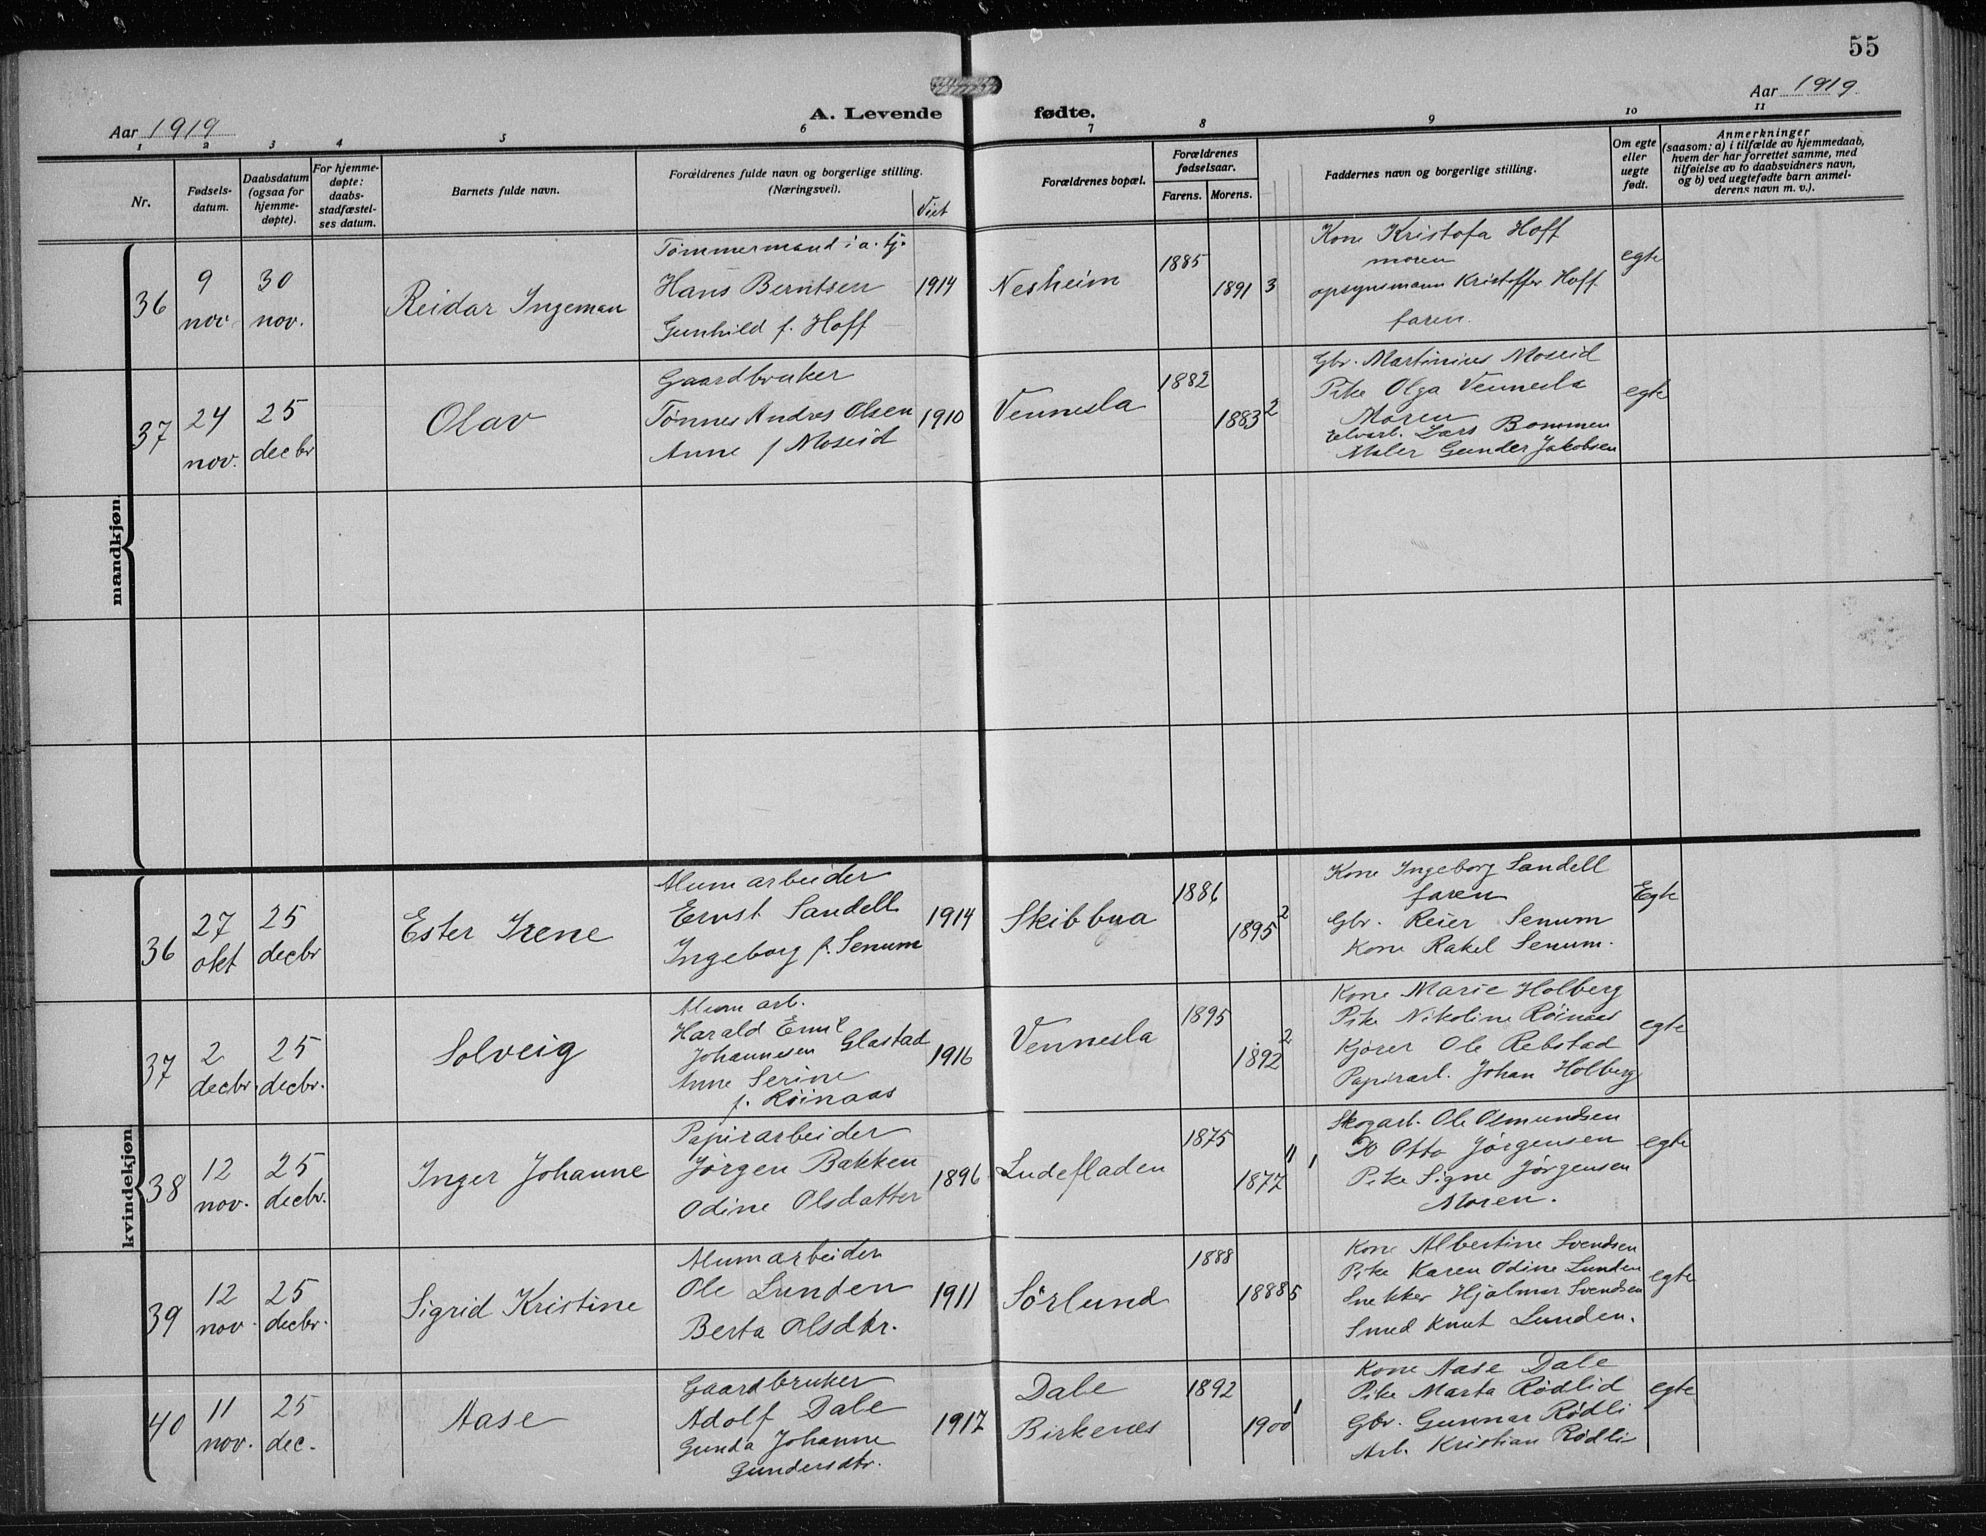 55
Aar 1919
A. Levende fødte.
Aar 1919
1 2 3 4 5 6 7 8 9 10 11
Nr.
Fødsels-
datum.
Daabsdatum
(ogsaa for
hjemme-
døpte).
For hjemme-
døpte:
daabs-
stadfæstel-
ses datum.
Barnets fulde navn.
Forældrenes fulde navn og borgerlige stilling.
(Næringsvei).
Viet
Forældrenes bopæl.
Forældrenes
fødselsaar.
Farens. Morens.
Faddernes navn og borgerlige stilling.
Om egte
eller
uegte
født.
Anmerkninger
(saasom: a) i tilfælde av hjemmedaab,
hvem der har forrettet samme, med
tilføielse av to daabsvidners navn,
og b) ved uegtefødte barn anmel-
derens navn m. v.).
mandkjøn.
36
9
nov.
30
nov.
Reidar Ingeman
Tømmermand i a. tj.
Hans Berntsen
Gunhild f. Hoff
1914
Nesheim
1885
1891
3
Kone Kristofa Hoff
moren
opsynsmann Kristoffer Hoff
faren.
egte
37
24
nov.
25
decbr
Olav
Gaardbruker
Tønnes Andres Olsen
Anne f Moseid
1910
Vennesla
1882
1883
2
Gbr. Martinius Moseid
Pike Olga Vennesla
Moren
Elvarb. Lars Bommen
Maler Gunder Jakobsen
egte
kvindekjøn.
36
27
okt
25
decbr
Ester Irene
Alumarbeider
Ernst Sandell
Ingeborg f. Senum
1914
Skibbya
1886
1895
2
Kone Ingeborg Sandell
faren
Gbr. Reier Senum
Kone Rakel Senum.
Egte
37
2
decbr.
25
decbr.
Solveig
Alum arb.
Harald Emil
Johannesen Glastad
Anne Serine
f. Röinaas
1916
Vennesla
1895
1892
2
Kone Marie Holberg
Pike Nikoline Röinaas
Kjører Ole Rebstad
Papirarb. Johan Holberg
egte
38
12
nov.
25
decbr.
Inger Johanne
Papirarbeider
Jørgen Bakken
Odine Olsdatter
1896
Ludefladen
1875
1877
11 1
Skogarb. Ole Osmundsen
Do Otto Jørgensen
Pike Signe Jørgensen
Moren.
egte
39
12
nov.
25
decbr.
Sigrid Kristine
Alumarbeider
Ole Lunden
Berta Olsdtr.
1911
Sörlund
1888
1888
5
Kone Albertine Svendsen
Pike Karen Odine Lunden
Snekker Hjalmar Svendsen
Smed Knut Lunden.
egte
40
11
nov.
25
dec.
Aase
Gaardbruker
Adolf Dale
Gunda Johanne
Gundersdtr.
1917
Dale
Birkenes
1892
1900
1
Kone Aase Dale
Pike Marta Rödlid
Gbr. Gunnar Rödli
Arb. Kristian Rödli
egte